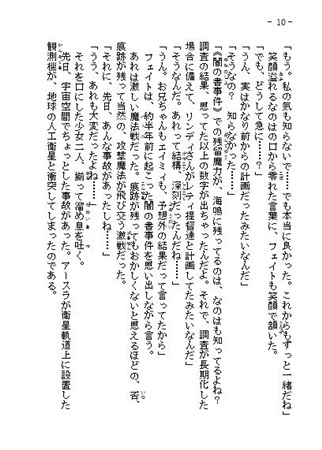 - 10 -
「もう。私の気も知らないで……でも本当に良かった。これからもずっと一緒だね」
笑顔溢れるなのはの口から零れた言葉に、フェイトも笑顔で頷いた。
「でも、どうして急に……？」
「うん、実はかなり前からの計画だったみたいなんだ」
「そうなの？　知らなかった……」
「《闇の書事件》での残留魔力が、海鳴に残ってるのは、なのはも知ってるよね？
調査の結果、思ってた以上の数字が出ちゃったんだよ。それで、調査が長期化した
場合に備えて、リンディさんがレティ提督達と計画してたみたいなんだ」
「そうなんだ。あれって結構、深刻だったんだね……」
「うん。お兄ちゃんもエイミィも、予想外の結果だって言ってたから」
フェイトは、約半年前に起こった闇の書事件を思い出しながら言う。
あれは激しい魔法戦だった。痕跡が残ってもおかしくないと思えるほどの、否、
いな
痕跡が残って当然の、攻撃魔法が飛び交う激戦だった。
「それに、先日、あんな事故があったしね……」
「うぅ、あれも大変だったよね……」
それを口にした少女二人、揃って溜め息を吐く。
先日、宇宙空間でちょっとした事故があった。アースラが衛星軌道上に設置した
観測機が、地球の人工衛星と衝突してしまったのである。